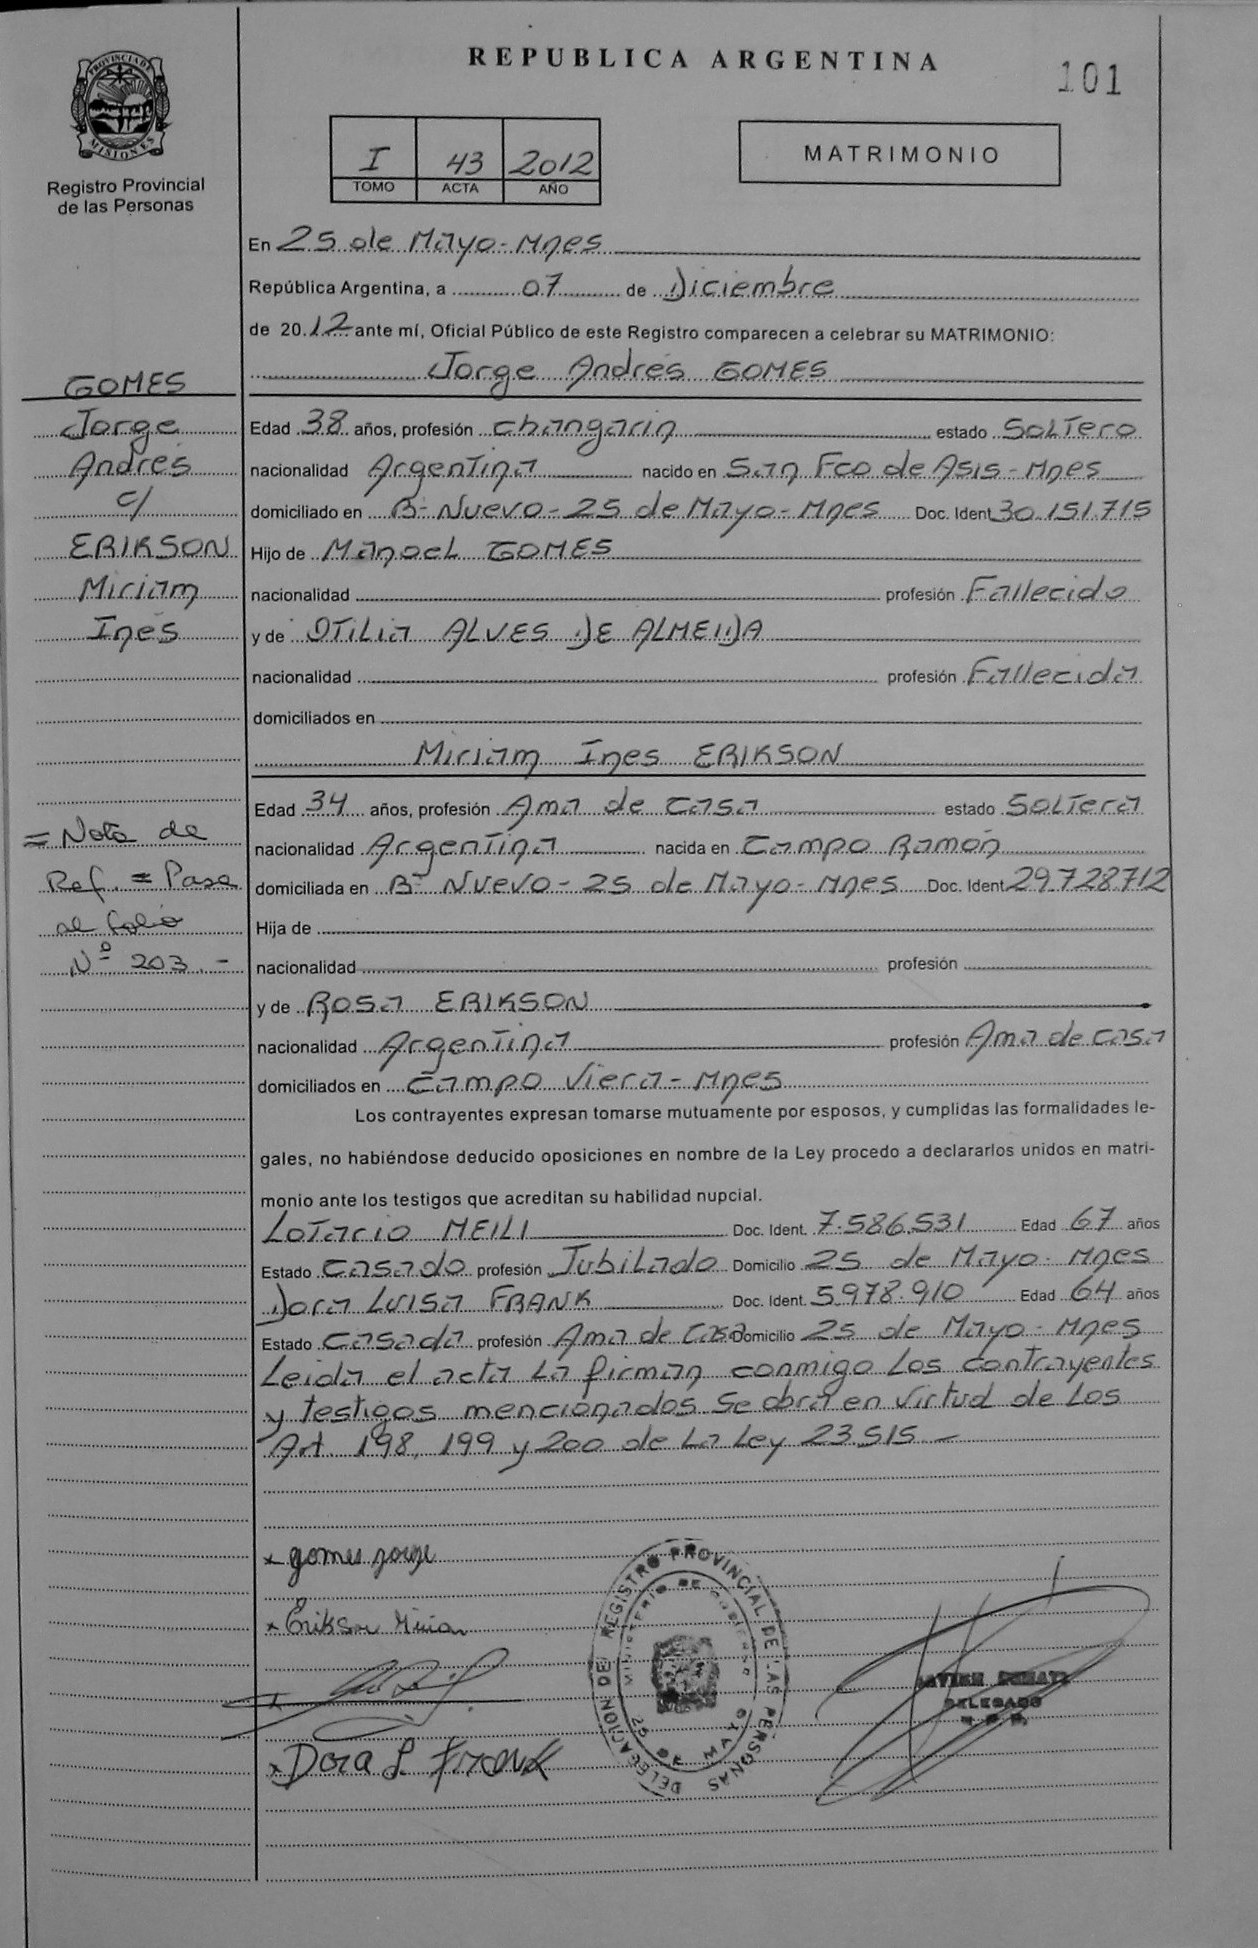 REPUBLICA ARGENTINA
101
PROVINCIA DE
MISIONES
Registro Provincial
de las Personas
I 43 2012
TOMO ACTA AÑO
MATRIMONIO
En 25 de Mayo-Mnes
República Argentina, a 07 de Diciembre
de 20 12 ante mí, Oficial Público de este Registro comparecen a celebrar su MATRIMONIO:
Jorge Andrés GOMES
GOMES
Jorge
Andrés
c/
ERIKSON
Miriam
Inés
Edad 38 años, profesión changarin estado Soltero
nacionalidad Argentina nacido en San Fco de Asis-Mnes
domiciliado en B- Nuevo-25 de Mayo-Mnes Doc. Ident 30.151.715
Hijo de Manoel GOMES
nacionalidad profesión Fallecido
y de OTiLia ALVES DE ALMEIDA
nacionalidad profesión Fallecida
domiciliados en
Miriam Ines ERIKSON
Edad 34 años, profesión Ama de casa estado Soltera
nacionalidad Argentina nacida en Campo Ramón
domiciliada en B- Nuevo-25 de Mayo-Mnes Doc. Ident 29.728.712
Hija de
nacionalidad profesión
y de Rosa ERIKSON
nacionalidad Argentina profesión Ama de casa
domiciliados en Campo Viera-Mnes
= Nota de
Ref. = Pasa
al folio
Nº 203.-
Los contrayentes expresan tomarse mutuamente por esposos, y cumplidas las formalidades le-
gales, no habiéndose deducido oposiciones en nombre de la Ley procedo a declararlos unidos en matri-
monio ante los testigos que acreditan su habilidad nupcial.
Lotario MEILI Doc. Ident. 7.586.531 Edad 67 años
Estado casado profesión Jubilado Domicilio 25 de Mayo-Mnes
Dora Luisa FRANK Doc. Ident. 5.978.910 Edad 64 años
Estado casada profesión Ama de casa Domicilio 25 de Mayo-Mnes
Leida el acta la firman conmigo los contrayentes
y testigos mencionados se obra en virtud de los
Art 198, 199 y 200 de la Ley 23.515 -
x gomes jorge
x Erikson Mirian
x
x Dora L. Frank
DELEGACION DE REGISTRO PROVINCIAL DE LAS PERSONAS
MINISTERIO DE GOBIERNO
25 DE MAYO
DELEGADO